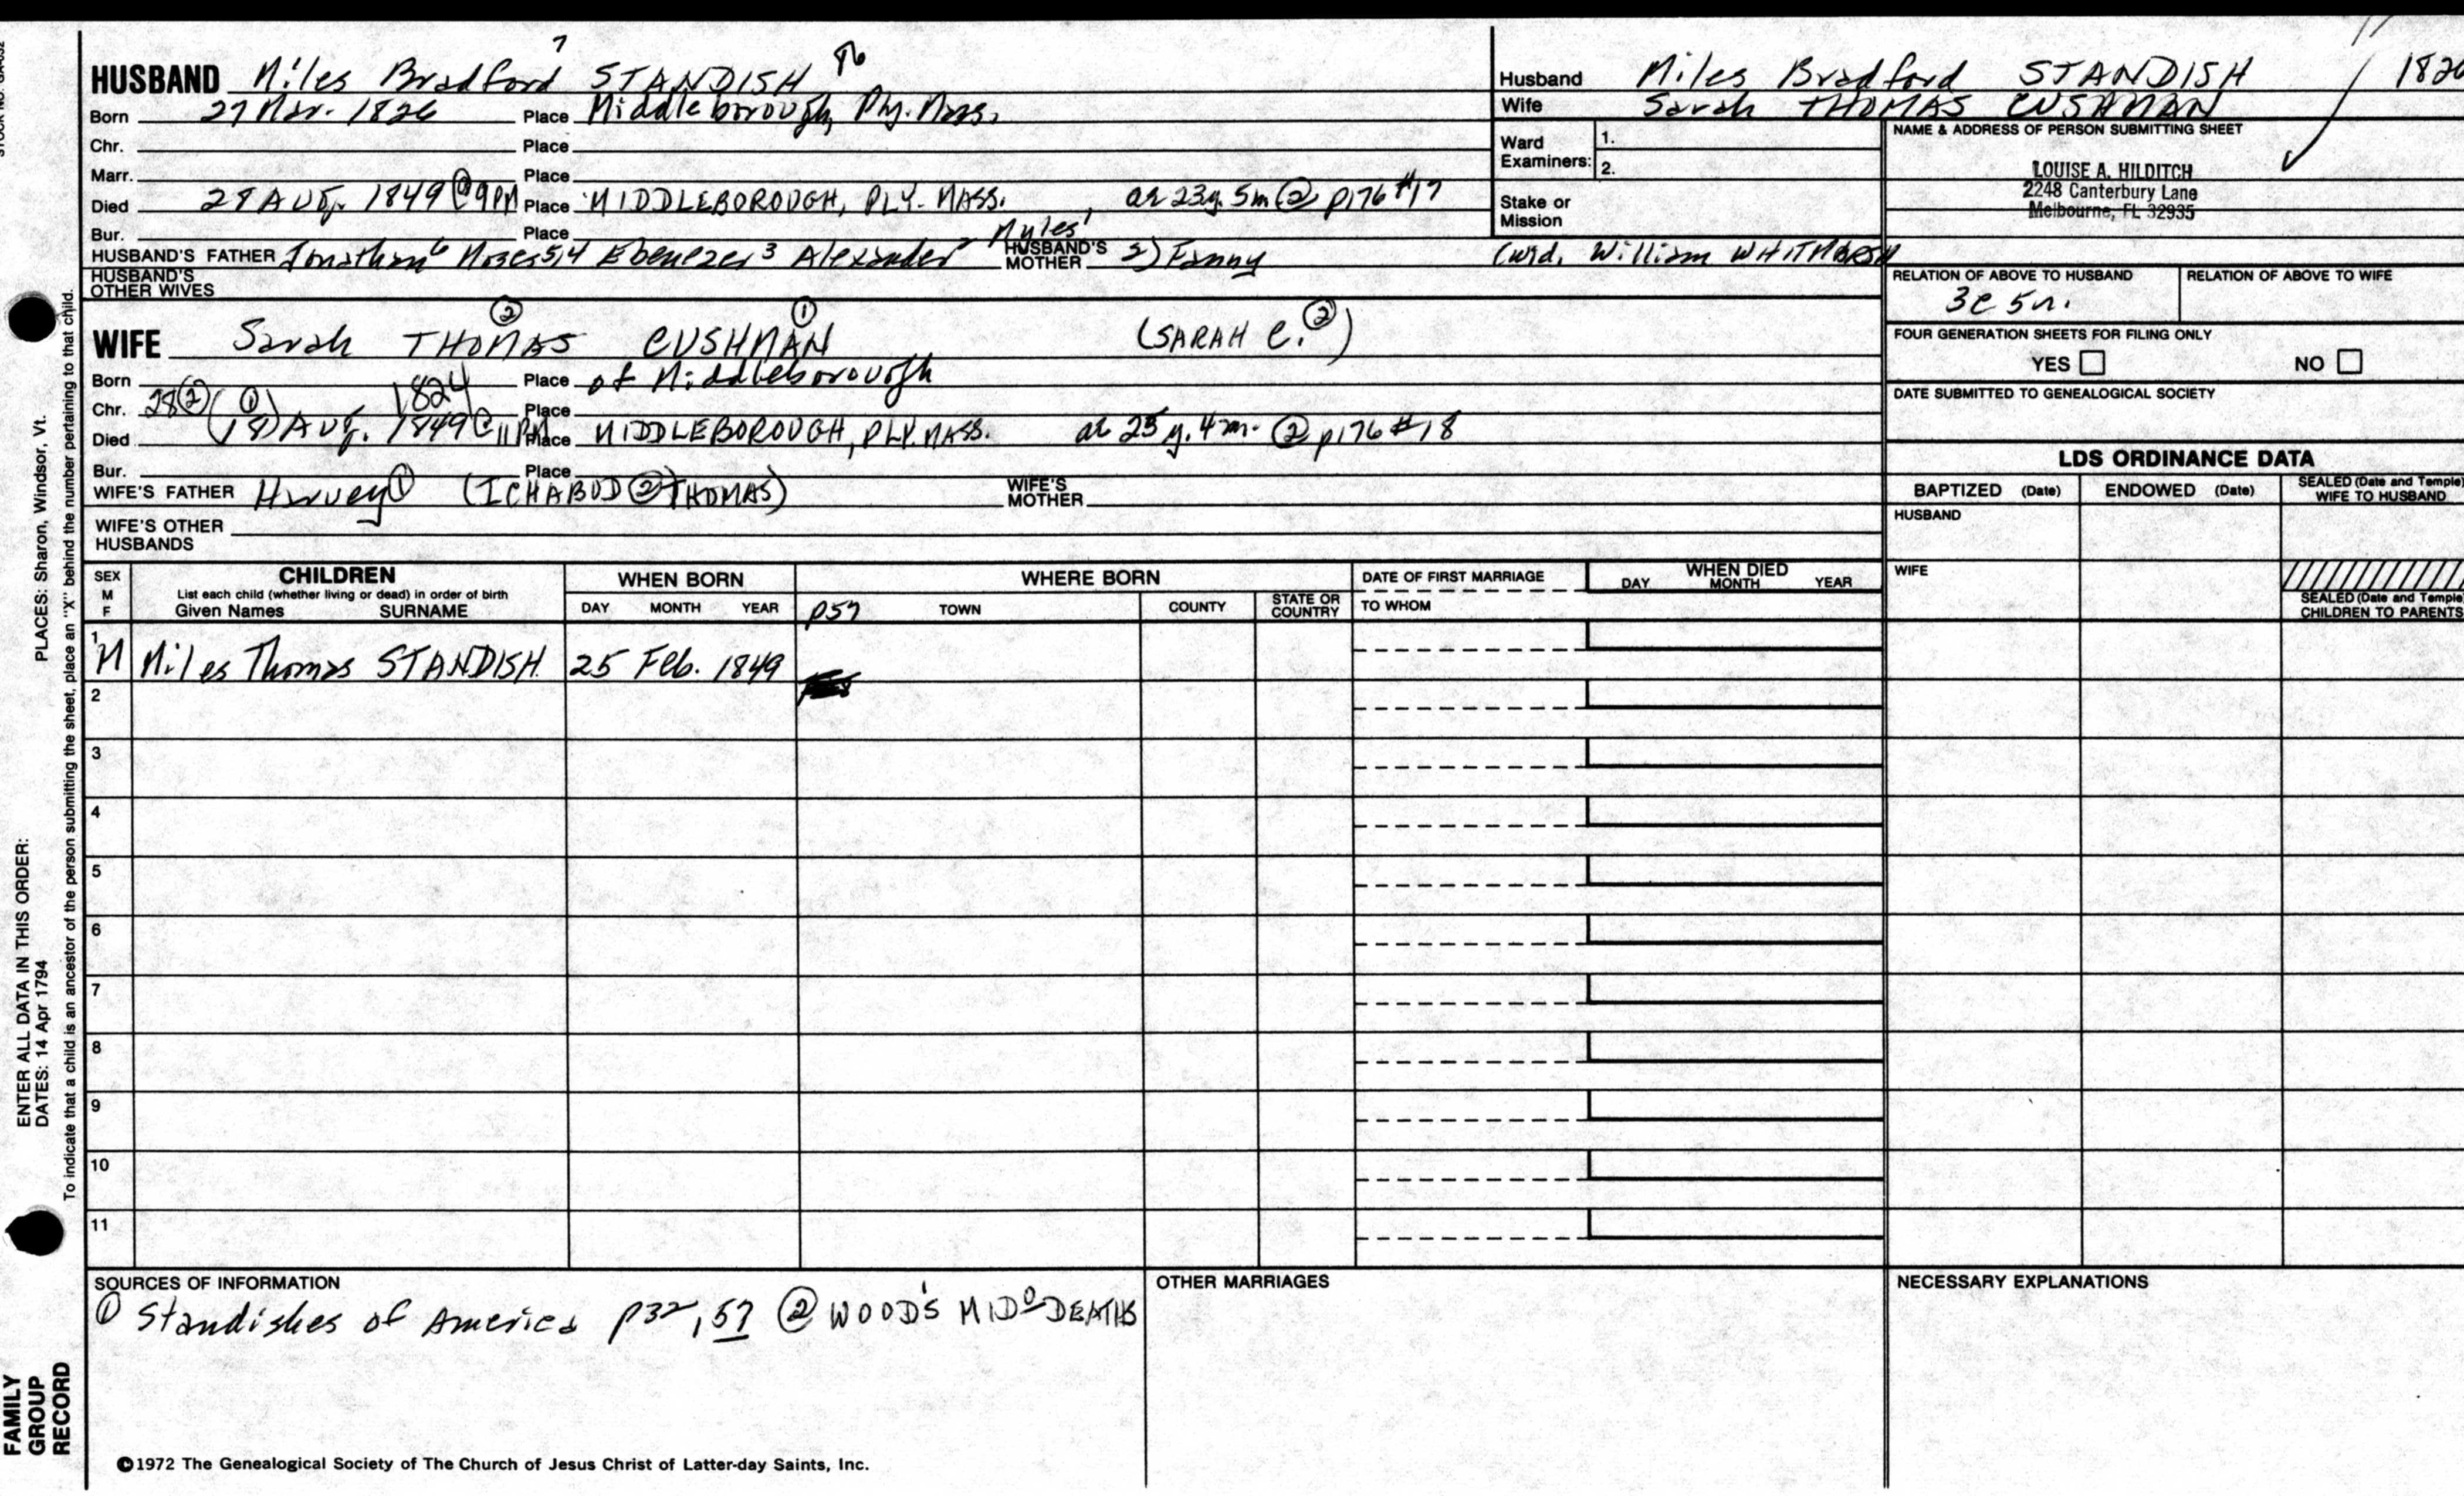 7
HUSBAND Miles Bradford STANDISH
Born 27 Mar. 1826 Place Middleborough, Ply. Mass.
Chr. Place
Marr. Place
Died 28 AUG. 1849 @ 9PM Place MIDDLEBOROUGH, PLY. MASS., ae 23y. 5m ② p176 #17
Bur. Place Myles¹
HUSBAND'S FATHER Jonathan⁶ Moses5,4 Ebenezer³ Alexander² HUSBAND'S MOTHER 2) Fanny (wid. William
HUSBAND'S OTHER WIVES
WIFE Sarah THOMAS ② CUSHMAN ① (SARAH C. ②)
Born 1824 Place of Middleborough
Chr. Place
Died 28② (18)① AUG. 1849 @ 11PM Place MIDDLEBOROUGH, PLY. MASS. ae 25 y. 4 m. ② p176 #18
Bur. Place
WIFE'S FATHER Harvey① (ICHABUD ② THOMAS) WIFE'S MOTHER
WIFE'S OTHER HUSBANDS
Husband Miles Bradford STANDISH 1826
Wife Sarah THOMAS CUSHMAN
Ward Examiners: 1.
2.
Stake or Mission
NAME & ADDRESS OF PERSON SUBMITTING SHEET
LOUISE A. HILDITCH
2248 Canterbury Lane
Melbourne, FL 32935
RELATION OF ABOVE TO HUSBAND RELATION OF ABOVE TO WIFE
3c 5r.
FOUR GENERATION SHEETS FOR FILING ONLY
YES NO
DATE SUBMITTED TO GENEALOGICAL SOCIETY
LDS ORDINANCE DATA
BAPTIZED (Date) ENDOWED (Date) SEALED (Date and Temple) WIFE TO HUSBAND
HUSBAND
WIFE
SEALED (Date and Temple) CHILDREN TO PARENTS
SEX M F
CHILDREN
List each child (whether living or dead) in order of birth
Given Names SURNAME
WHEN BORN
DAY MONTH YEAR
WHERE BORN
p57 TOWN COUNTY STATE OR COUNTRY
DATE OF FIRST MARRIAGE
TO WHOM
WHEN DIED
DAY MONTH YEAR
1 M Miles Thomas STANDISH 25 Feb. 1849
2
3
4
5
6
7
8
9
10
11
SOURCES OF INFORMATION
① Standishes of America p32, 57 ② WOOD'S MIDᴼ DEATHS
OTHER MARRIAGES
NECESSARY EXPLANATIONS
©1972 The Genealogical Society of The Church of Jesus Christ of Latter-day Saints, Inc.
ENTER ALL DATA IN THIS ORDER:
DATES: 14 Apr 1794
PLACES: Sharon, Windsor, Vt.
To indicate that a child is an ancestor of the person submitting the sheet, place an "X" behind the number pertaining to that child.
FAMILY
GROUP
RECORD